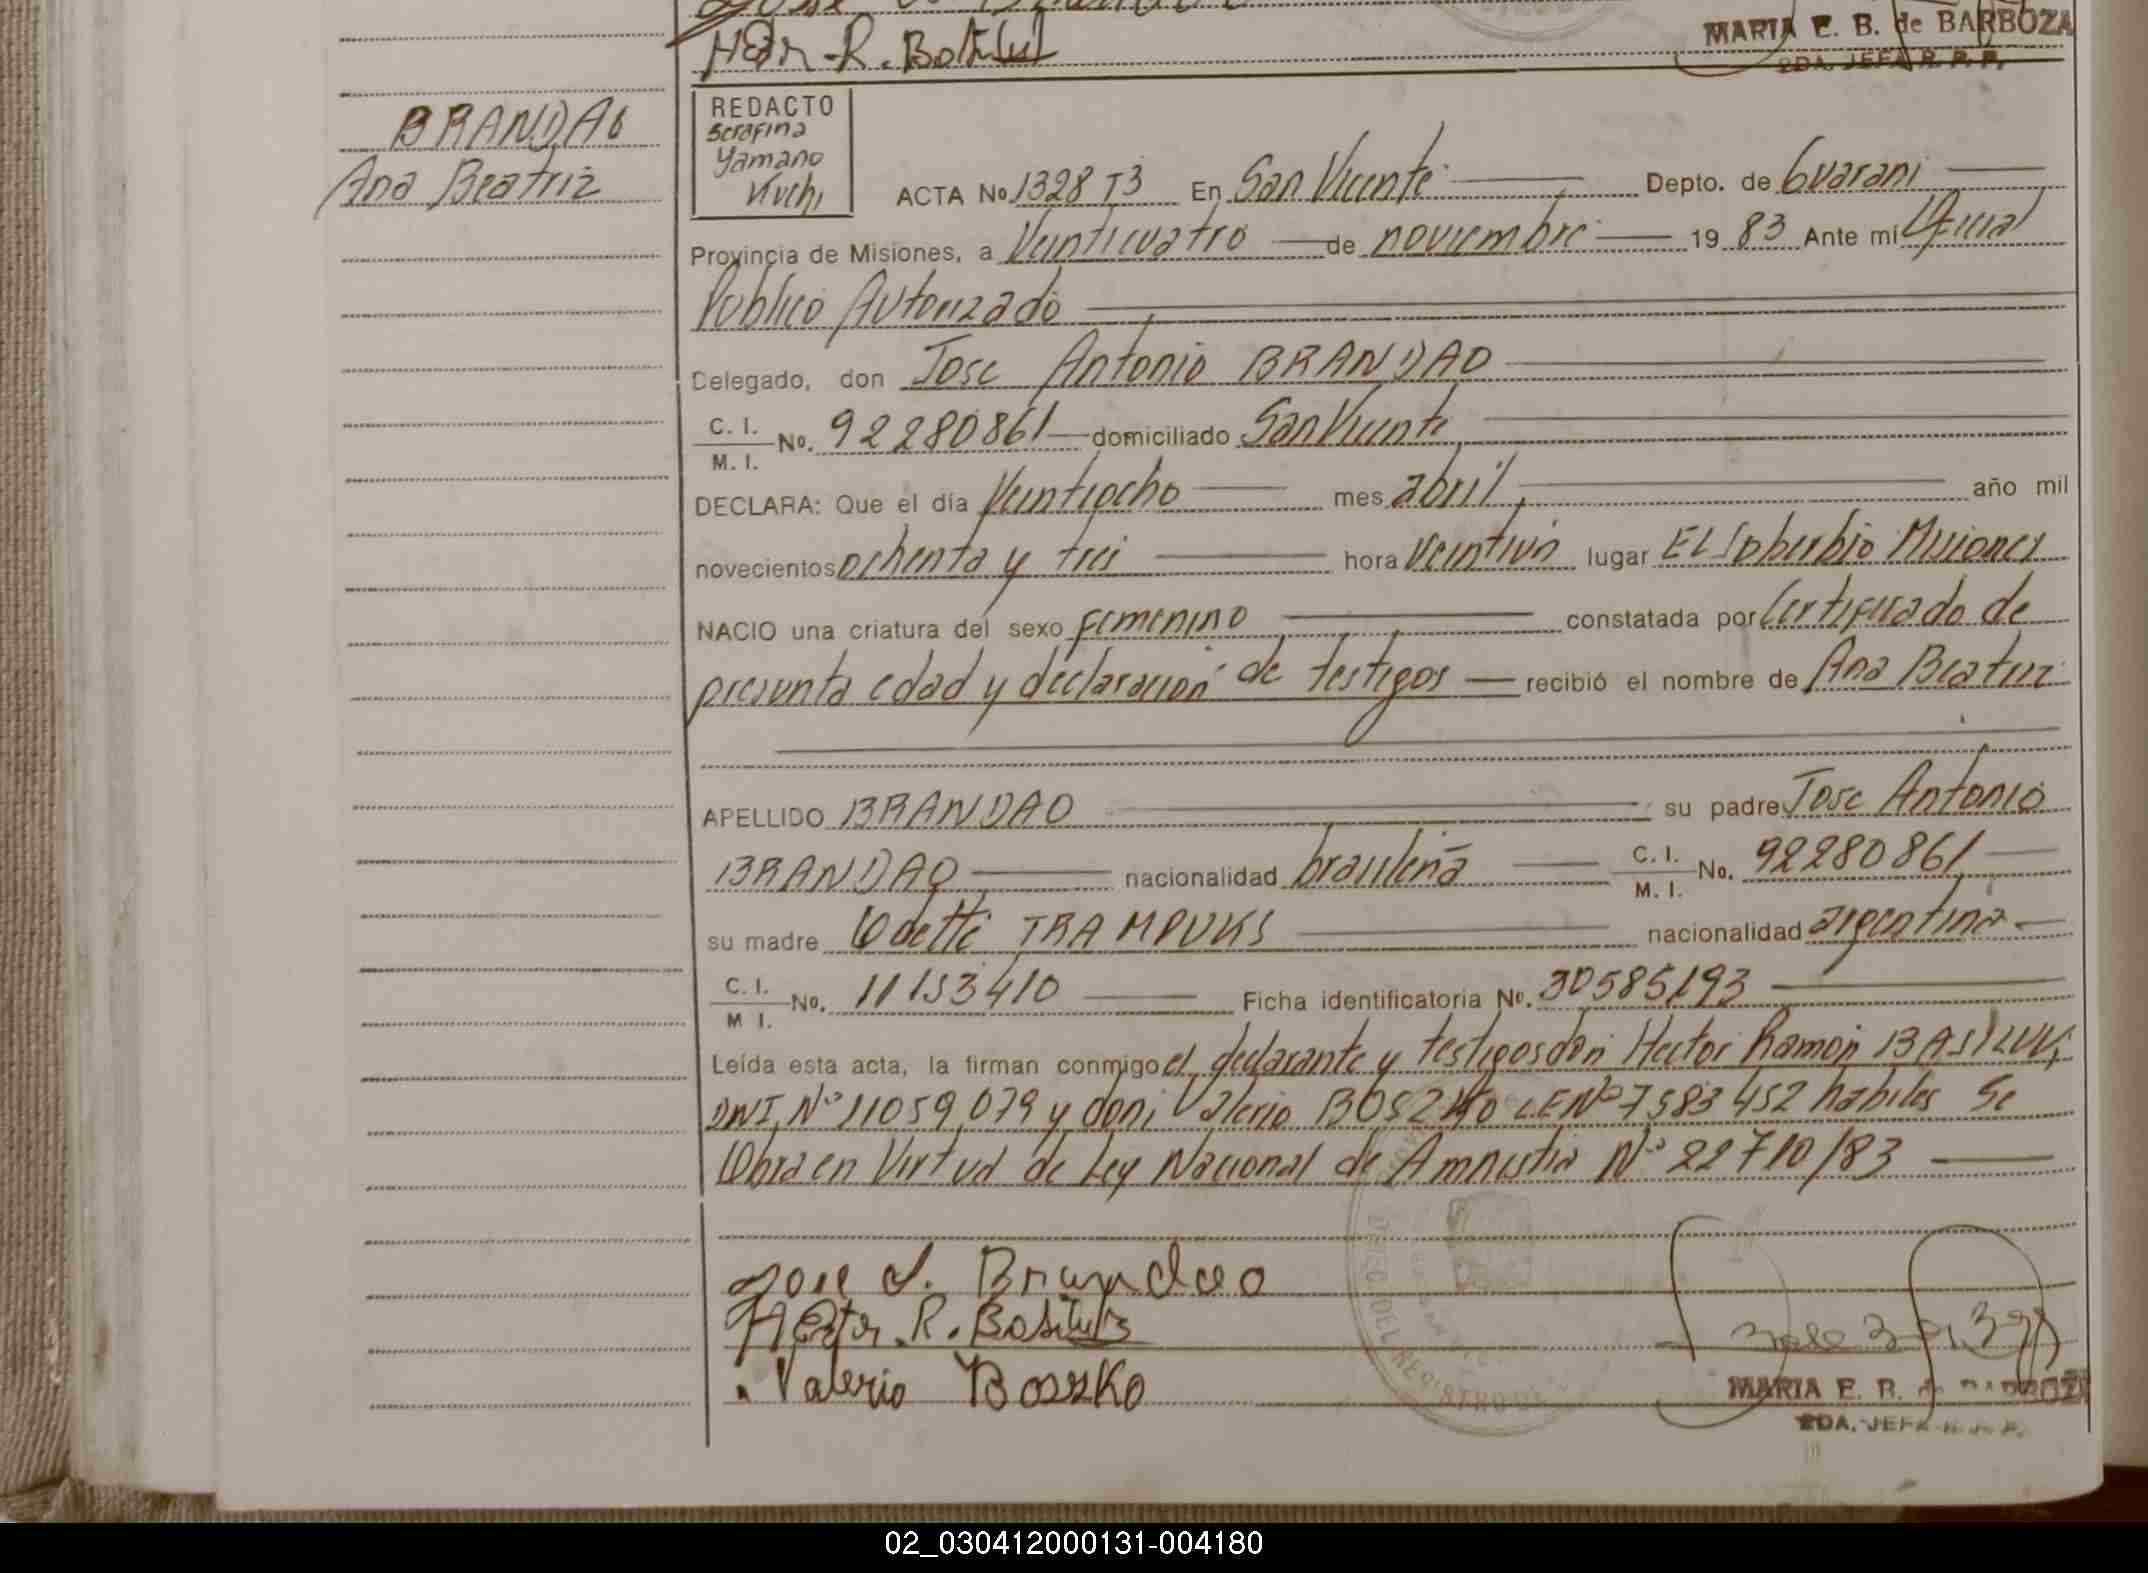 Hector R. Basiluk
MARIA E. B. de BARBOZA
2DA. JEFA R. P. P.
BRANDAO
Ana Beatriz
REDACTO
Serafina
Yamano
Kuchi
ACTA No 1328 T3 En San Vicente Depto. de Guarani
Provincia de Misiones, a Veinticuatro de noviembre 19 83 Ante mí Oficial
Publico Autorizado
Delegado, don Jose Antonio BRANDAO
C. I.
M. I. No. 92280861 domiciliado San Vicente
DECLARA: Que el día Veintiocho mes abril año mil
novecientos ochenta y tres hora Veintiun lugar El Soberbio Misiones
NACIO una criatura del sexo femenino constatada por Certificado de
presunta edad y declaración de testigos recibió el nombre de Ana Beatriz
APELLIDO BRANDAO su padre Jose Antonio
BRANDAO nacionalidad brasileña C. I. M. I. No. 92280861
su madre Odette TRAMPUKS nacionalidad argentina
C. I. M I. No. 11153410 Ficha identificatoria No. 30585193
Leída esta acta, la firman conmigo el declarante y testigos don Hector Ramon BASILUK
DNI Nº 11059.079 y don Valerio BOSZKO LE Nº 7583452 habiles Se
Obra en Virtud de Ley Nacional de Amnistia Nº 22710/83
Jose A. Brandao
Hector R. Basiluk
Valerio Boszko
MARIA E. B. de BARBOZA
2DA. JEFA R. P. P.
02_030412000131-004180